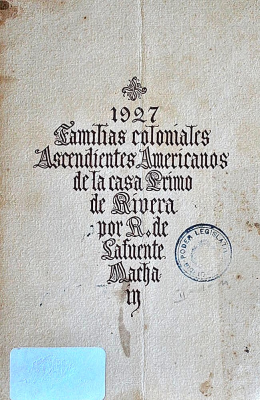 1927
Familias coloniales
Ascendientes Americanos
de la casa Primo
de Rivera
por R. de
Lafuente
Macha
in
PODER LEGISLATI